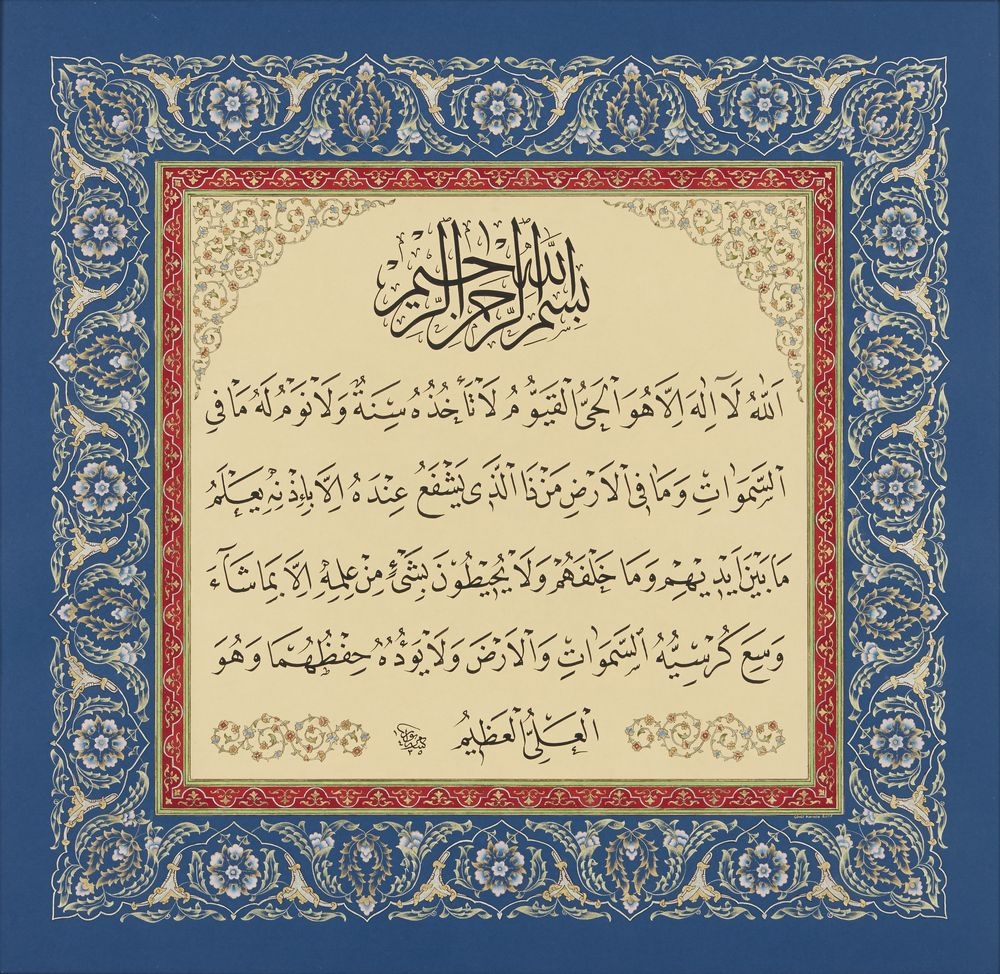 بِسْمِ اللهِ الرَّحْمٰنِ الرَّحِيمِ
اَللّٰهُ لَآ اِلٰهَ اِلَّا هُوَ اَلْحَيُّ الْقَيُّومُ لَا تَأْخُذُهُ سِنَةٌ وَلَا نَوْمٌ لَهُ مَا فِي
السَّمٰوَاتِ وَمَا فِي الْاَرْضِ مَنْ ذَا الَّذِي يَشْفَعُ عِنْدَهُ اِلَّا بِاِذْنِهِ يَعْلَمُ
مَا بَيْنَ اَيْدِيهِمْ وَمَا خَلْفَهُمْ وَلَا يُحِيطُونَ بِشَيْءٍ مِنْ عِلْمِهِ اِلَّا بِمَا شَآءَ
وَسِعَ كُرْسِيُّهُ السَّمٰوَاتِ وَالْاَرْضَ وَلَا يَؤُدُهُ حِفْظُهُمَا وَهُوَ
الْعَلِيُّ الْعَظِيمُ